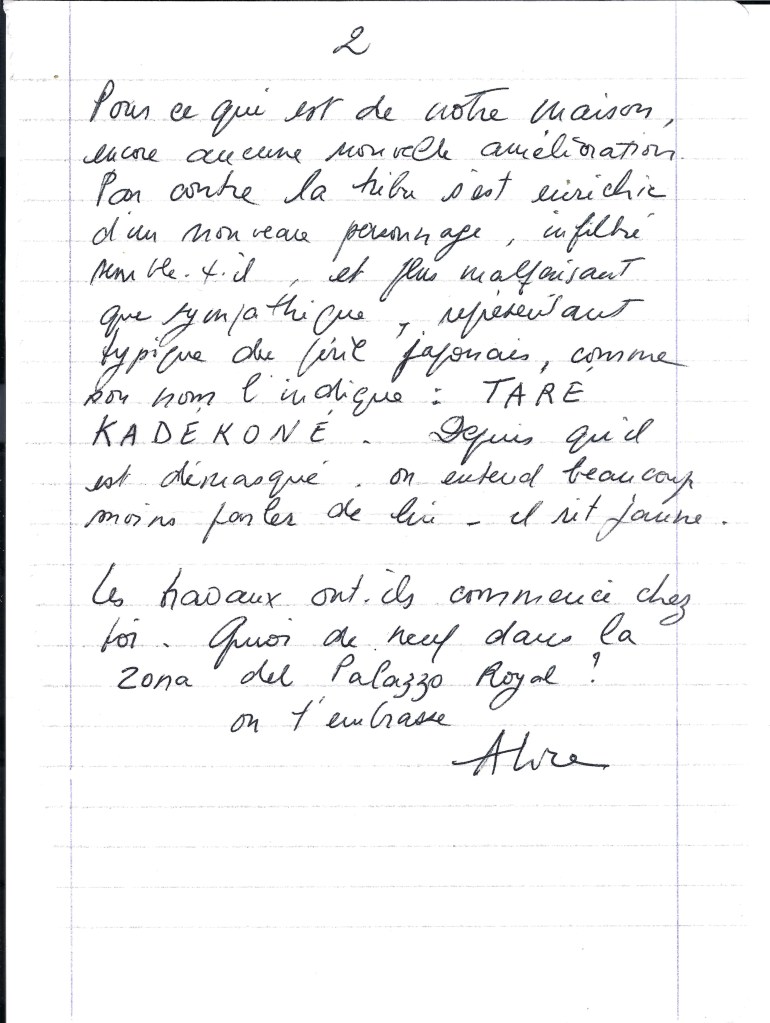 2
Pour ce qui est de notre maison,
encore aucune nouvelle amélioration.
Par contre la tribu s'est enrichie
d'un nouveau personnage, infiltré
semble-t-il, et plus malfaisant
que sympathique, représentant
typique du péril japonais, comme
son nom l'indique : TARÉ
KADÉKONÉ. Depuis qu'il
est démasqué. on entend beaucoup
moins parler de lui - il rit jaune.
Les travaux ont-ils commencé chez
toi. Quoi de neuf dans la
zona del Palazzo Royal ?
on t'embrasse